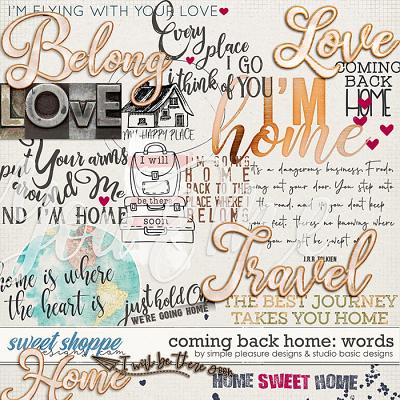 I'M FLYING WITH YOUR LOVE
Belong
Every
place
I GO
i think of YOU
Love
COMING
BACK
HOME
LOvE
MY HAPPY PLACE
I'M
home
put Your arms
around Me
AND I'M HOME
I will
be there
soon
I'M GOING
HOME
BACK TO THE
PLACE WHERE I
BELONG
It's a dangerous business, Frodo,
going out your door. You step onto
the road, and if you don't keep
your feet, there's no knowing where
you might be swept off
J.R.R. TOLKIEN
home is where
the heart is
just hold On
WE'RE GOING HOME
Travel
THE BEST JOURNEY
TAKES YOU HOME
sweet shoppe
designs.com
coming back home: words
by simple pleasure designs & studio basic designs
I will be there soon
Home
HOME SWEET HOME